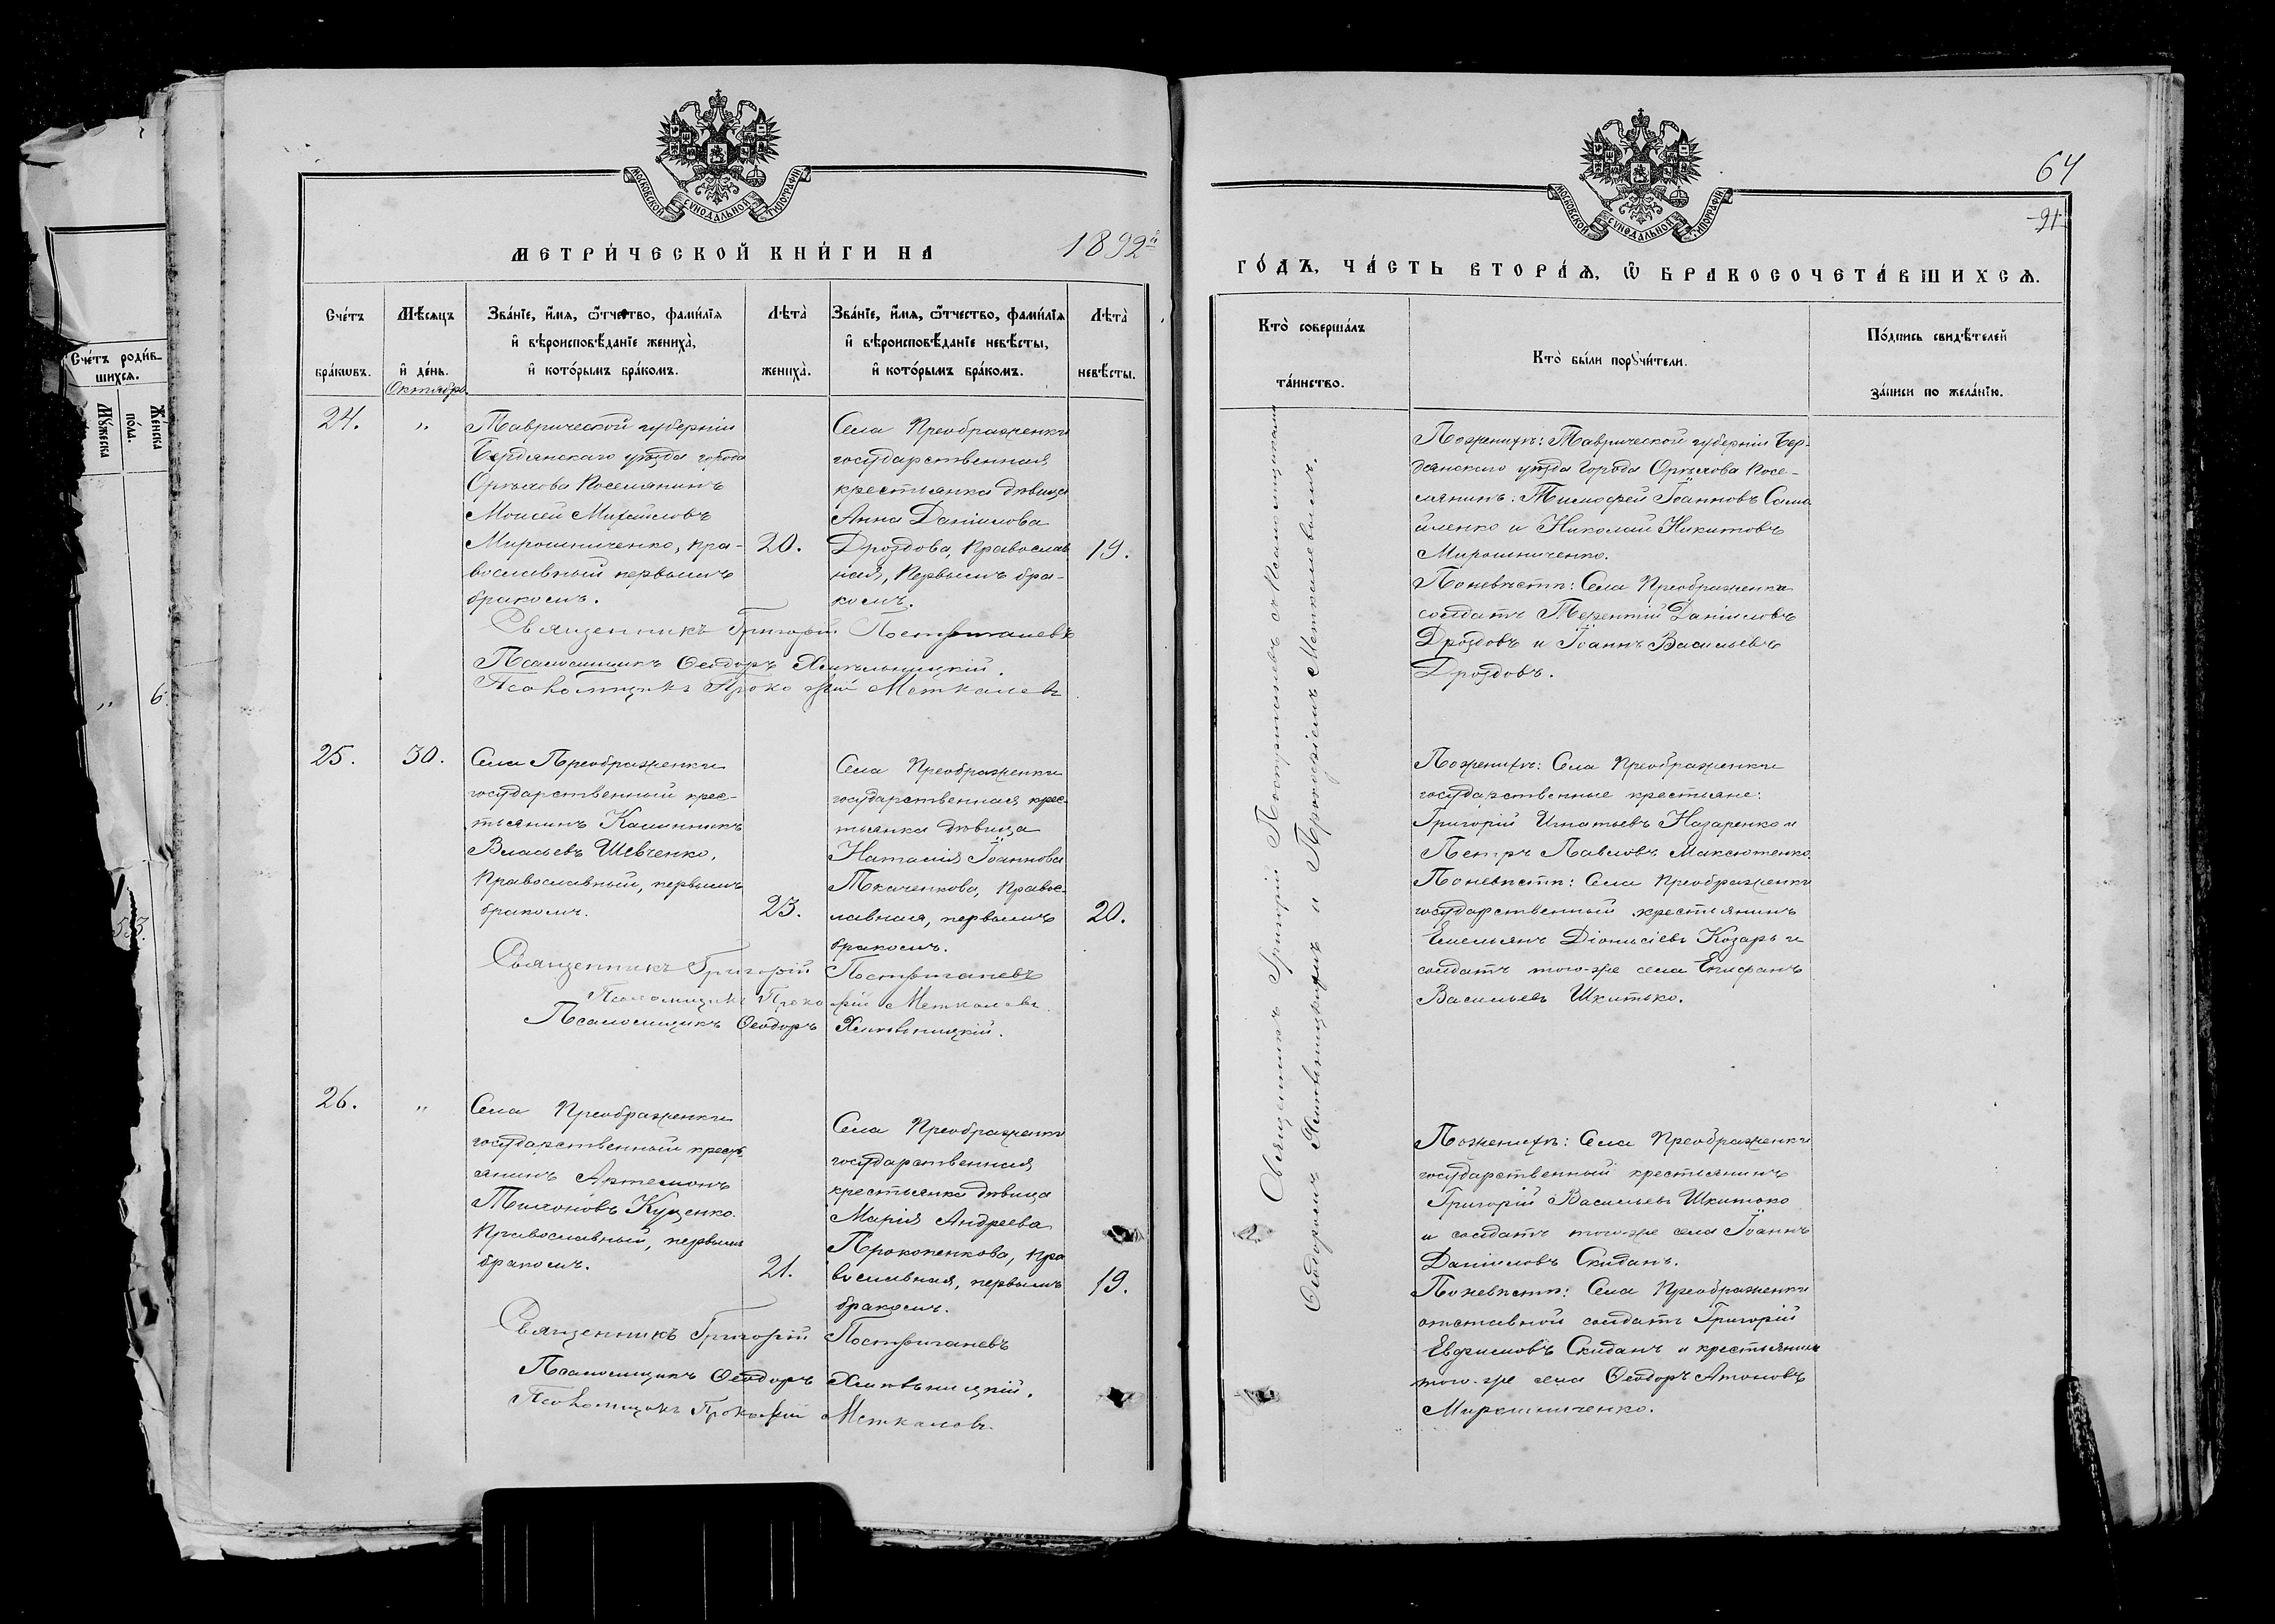 МОСКОВСКОЙ СѴНОДАЛЬНОЙ ТИПОГРАФІИ
МЕТРИ́ЧЕСКОЙ КНИ́ГИ НА 1892й
Счетъ роди́в-
шихсѧ.
Мꙋжеска
Женска
пола.
„ 6.
533.
Сче́тъ
бра́кѡвъ.
Мѣ́сѧцъ
и҆ де́нь.
Зва́нїе, и҆́мѧ, ѻ҆́тчество, фами́лїѧ
и҆ вѣроисповѣ́данїе жениха̀,
и҆ кото́рымъ бра́комъ.
Лѣта̀
жениха̀.
Зва́нїе, и҆́мѧ, ѻ҆́тчество, фами́лїѧ
и҆ вѣроисповѣ́данїе невѣ́сты,
и҆ кото́рымъ бра́комъ.
Лѣта̀
невѣ́сты.
Октябрь.
24.
„
Таврической губерніи
Бердянскаго уѣзда города
Орѣхова Поселянинъ
Моисей Михайловъ
Мирошниченко, пра-
вославный первымъ
бракомъ.
20.
Села Преображенки
государственная
крестьянка дѣвица
Анна Даніилова
Дроздова, Православ
ная, Первымъ бра-
комъ.
19.
Священникъ Григорій
Псаломщикъ Ѳеодоръ
Псаломщикъ Прокофій Меткалевъ
25.
30.
Села Преображенки
государственный крес-
тьянинъ Калинникъ
Власьевъ Шевченко.
Православный, первымъ
бракомъ.
23.
Села Преображенки
государственная крес-
тьянка дѣвица
Наталія Іоаннова
Ткаченкова, Правос-
лавная, первымъ
бракомъ.
20.
Священникъ Григорій
Псаломщикъ Прокофій Меткалевъ
Псаломщикъ Ѳеодоръ
26.
„
Села Преображенки
государственный крест
янинъ Артемонъ
Тихоновъ Куценко.
Православный, первымъ
бракомъ.
21.
Села Преображенки
государственная
крестьянка дѣвица
Марія Андреева
Прокопенкова, пра
вославная, первымъ
бракомъ.
19.
Священникъ Григорій
Псаломщикъ Ѳеодоръ
Псаломщикъ Прокофій Меткалевъ
МОСКОВСКОЙ СѴНОДАЛЬНОЙ ТИПОГРАФІИ
64
21
ГО́ДЪ, ЧА́СТЬ ВТОРА́Ѧ, Ѡ҆ БРАКОСОЧЕТА́ВШИХСѦ.
Кто̀ соверша́лъ
та́инство.
Кто̀ бы́ли порꙋчи́тели.
По́дпись свидѣ́телей
за́писи по жела́нїю.
Священникъ Григорій съ Псаломщиками
Ѳеодоромъ и Прокофіемъ Меткалевымъ.
Поженихѣ: Таврической губерніи Бер-
дянскаго уѣзда Города Орѣхова Посе-
лянинъ: Тимофей Іоанновъ Сама
йленко и Николай Никитовъ
Мирошниченко.
Поневѣстѣ: Села Преображенка
солдатъ Терентій Даніиловъ
Дроздовъ и Іоаннъ Васильевъ
Дроздовъ.
Поженихѣ: Села Преображенки
государственные крестьяне:
Григорій Игнатьевъ Назаренко и
Петръ Павловъ Максютенко.
Поневѣстѣ: Села Преображенки
государственный крестьянинъ
Емельянъ Діонисіевъ Козарь и
солдатъ того-же села Епифанъ
Васильевъ Шкитько.
Поженихѣ: Села Преображенки
государственный крестьянинъ
Григорій Васильевъ Шкитько
и солдатъ того-же села Іоаннъ
Даніиловъ Скиданъ.
Поневѣстѣ: Села Преображенки
отставной солдатъ Григорій
Евфимовъ Скиданъ и крестьянинъ
того-же села Ѳеодоръ Антоновъ
Мирошниченко.